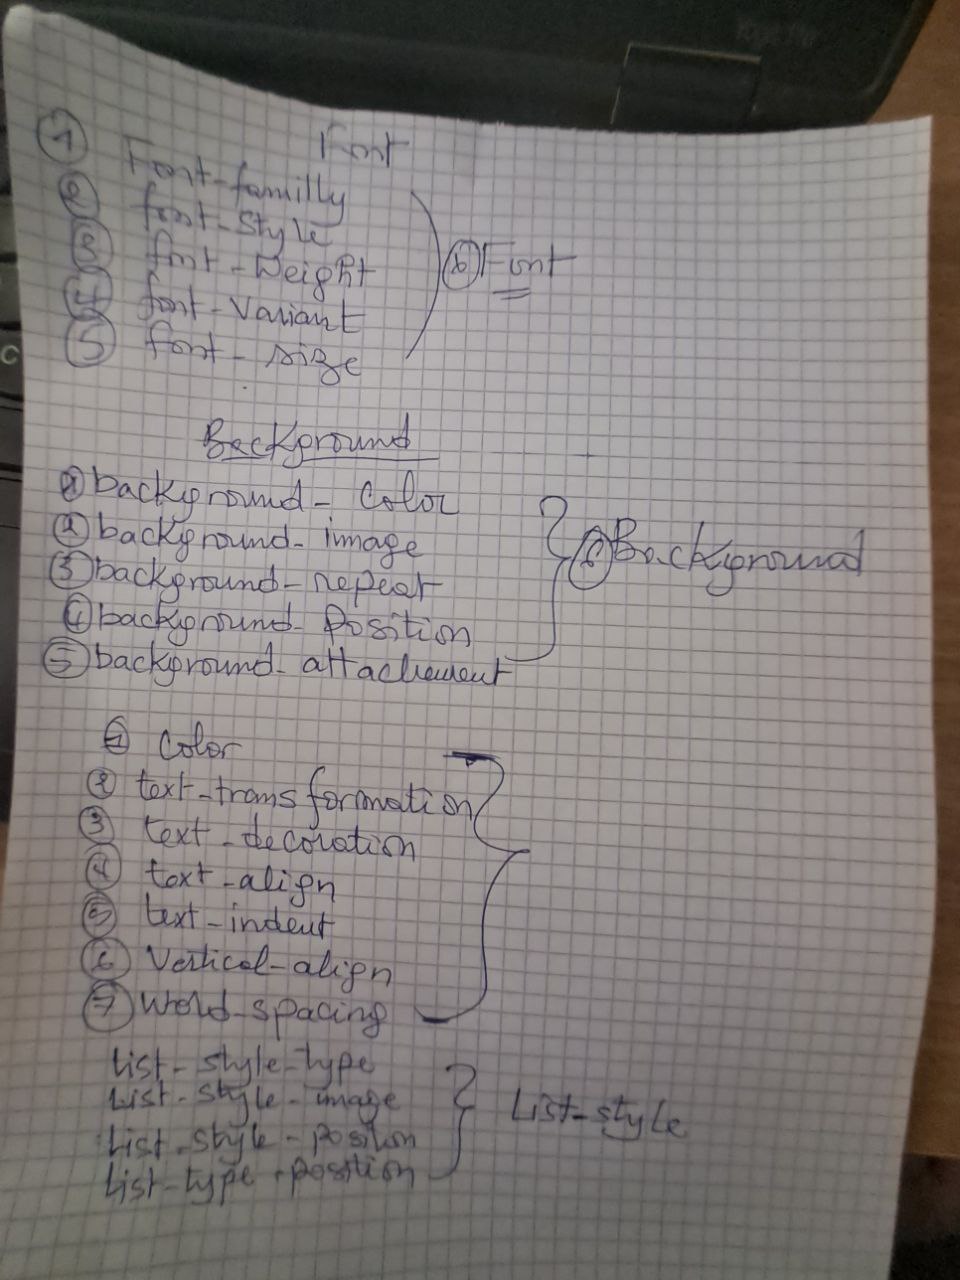 Font
① Font-familly
② font-style
③ font-Weight
④ font-Variant
⑤ font-size
⑥ Font
Background
① background-color
② background-image
③ background-repeat
④ background-Position
⑤ background-attachement
⑥ Background
① Color
② text-transformation
③ text-decoration
④ text-align
⑤ text-indent
⑥ Vertical-align
⑦ Word-spacing
List-style-type
List-style-image
List-style-position
List-type-position
List-style
C